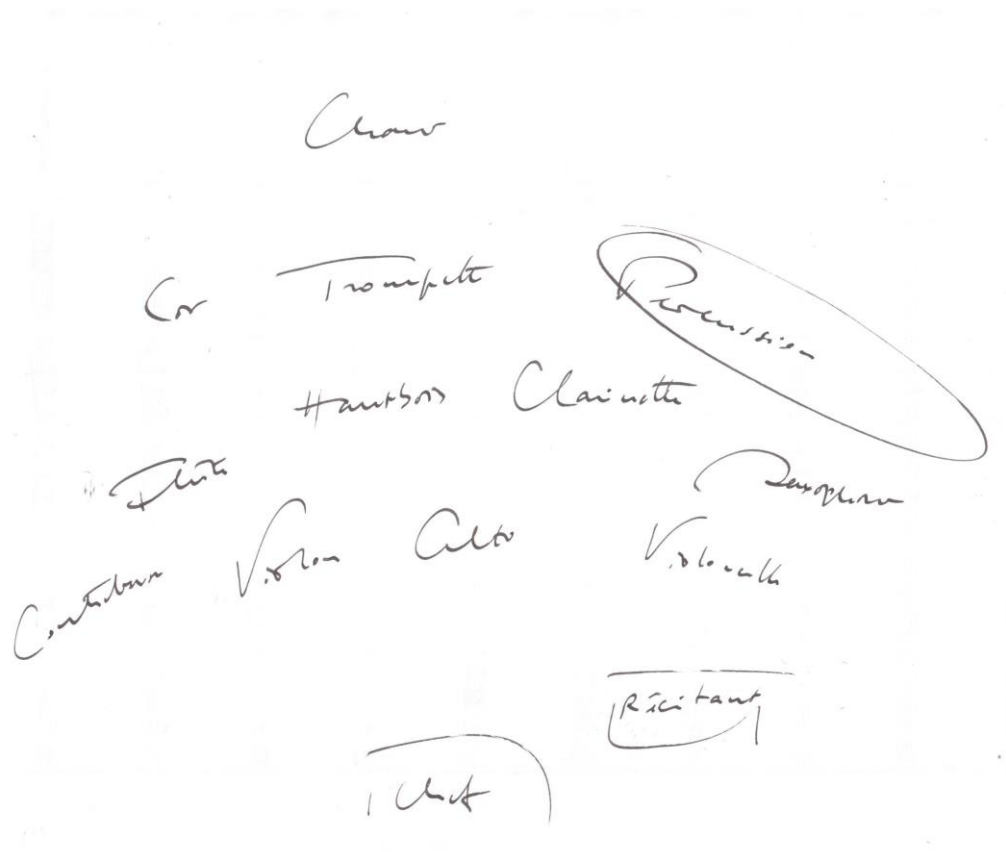 Chœur
Cor Trompette Percussion
Hautbois Clarinette
Flûte Saxophone
Contrebasse Violon Alto Violoncelle
Récitant
Chef